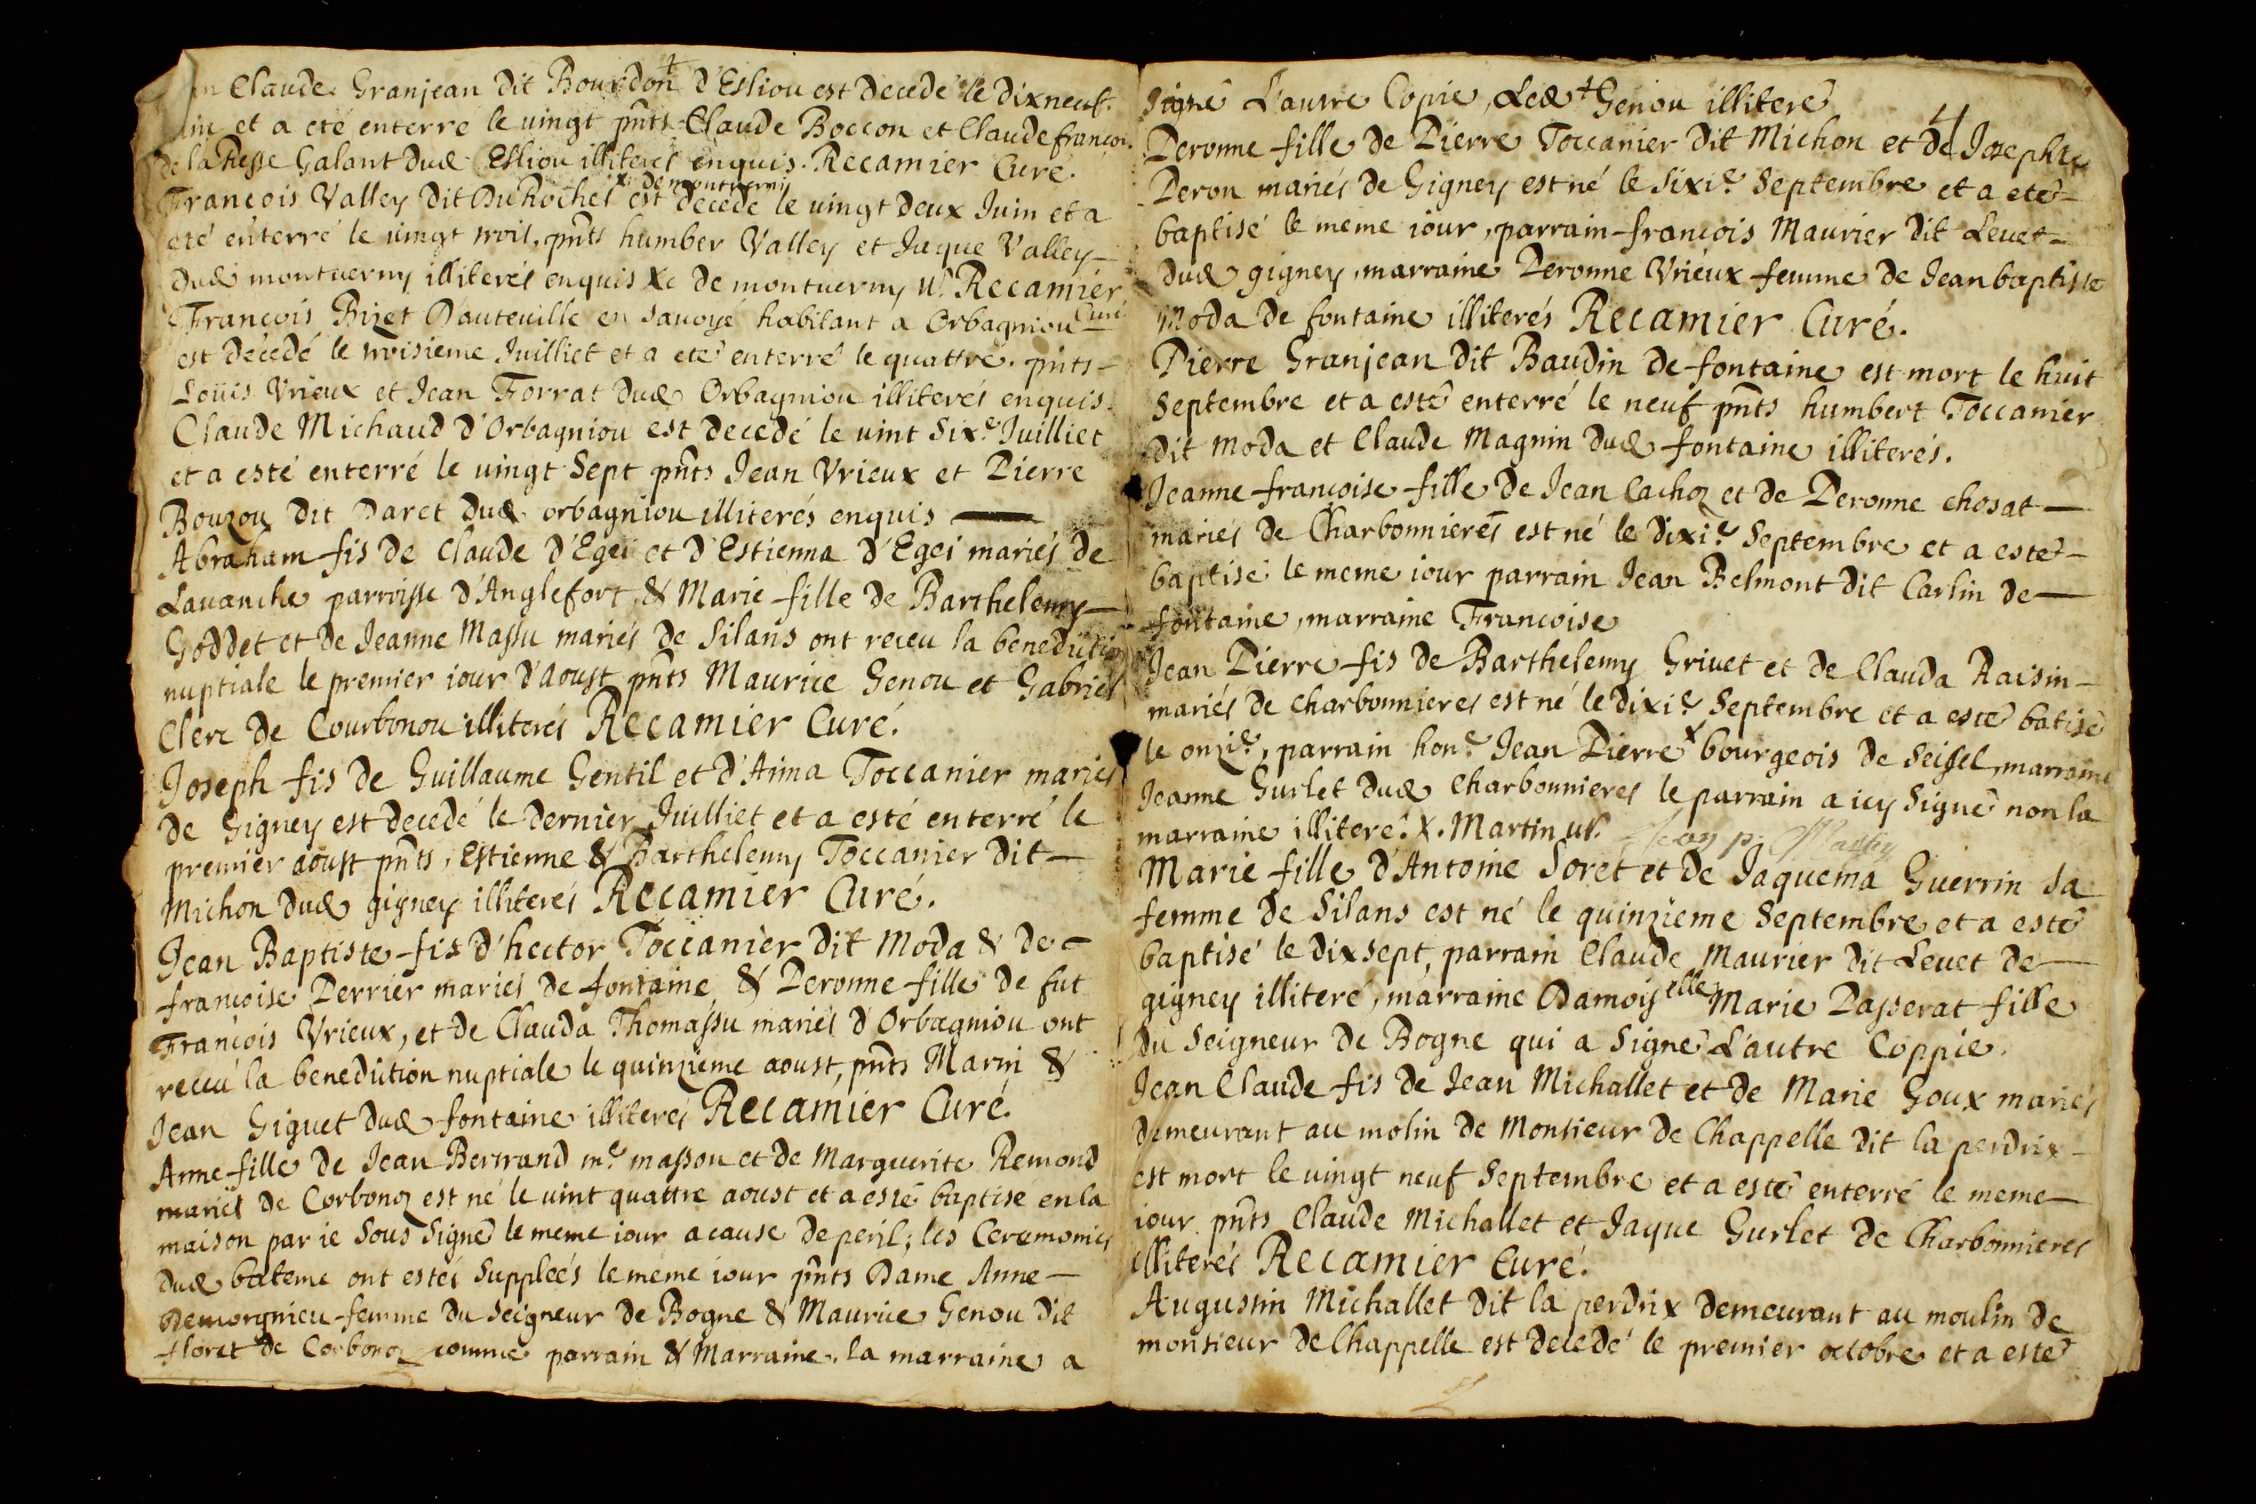 Claude Granjean dit Bourdon d'Esliou est decedé le dixneuf.
et a eté enterré le vingt pnts Claude Boccon et Claude françois
de la Resse Galant dud Esliou illiterés enquis. Recamier Curé.
x de montvernj
François Valley dit Du Rochet est decedé le vingt deux Juin et a
eté enterré le vingt trois, pnts humber Valley et Jaque Valley
dud montverny illiterés enquis Xc de montverny ut Recamier
Curé
François Bizet D'auteville en savoye habitant a Orbagniou
est decedé le troisieme Juilliet et a eté enterré le quattre. pnts
Loüis Vrieux et Jean Forrat dud Orbagniou illiterés enquis.
Claude Michaud d'Orbagniou est decedé le vint Sixe Juilliet
et a esté enterré le vingt Sept pnts Jean Vrieux et Pierre
Bouzou dit Daret dud. orbagniou illiterés enquis
Abraham fis de Claude d'Egei et d'Estienna d'Egei mariés de
Lavanche parroisse d'Anglefort, & Marie fille de Barthelemy
Goddet et de Jeanne Massu mariés de Silans ont receu la benediction
nuptiale le premier iour d'Aoust pnts Maurice Genou et Gabriel
Clerc de Courbonou illiterés Recamier Curé.
Joseph fis de Guillaume Gentil et d'Aima Toccanier mariés
de Gigney est decedé le dernier Juilliet et a esté enterré le
premier aoust pnts, Estienne & Barthelemy Toccanier dit
Michon dud gigney illiterés Recamier Curé.
Jean Baptiste fis d'hector Toccanier dit Moda & de
françoise Perrier mariés de fontaine & Peronne fille de fut
François Vrieux, et de Clauda Thomassu mariés d'Orbagniou ont
receu la benediction nuptiale le quinzieme aoust, pnts Marin &
Jean Giguet dud fontaine illiterés Recamier Curé.
Anne fille de Jean Bertrand me masson et de Marguerite Remond
mariés de Corbonoz est né le vint quattre aoust et a esté baptisé en la
maison par ie Sous Signé le meme iour a cause de peril; les Ceremonies
dud bateme ont estés Suppleés le meme iour pnts Dame Anne
Demorgnieu femme du Seigneur de Bogne & Maurice Genou dit
floret de Corbonoz comme parrain & Marraine. la marraine a
Signé L'autre Copie, Led + Genou illiteré
4
Peronne fille de Pierre Toccanier dit Michon et de Josephte
Peron mariés de Gigney est né le Sixie Septembre et a eté
baptisé le meme iour, parrain françois Maurier dit Levet
dud gigney, marraine Peronne Vrieux femme de Jean baptiste
Moda de fontaine illiterés Recamier Curé.
Pierre Granjean dit Baudin de fontaine est mort le huit
Septembre et a esté enterré le neuf pnts humbert Toccanier
dit Moda et Claude Magnin dud fontaine illiterés.
Jeanne françoise fille de Jean Cachoz et de Peronne Chosat
mariés de Charbonnieres est né le dixie Septembre et a esté
baptisé le meme iour parrain Jean Belmont dit Carlin de
fontaine, marraine Françoise
Jean Pierre fis de Barthelemy Grivet et de Clauda Raisin
mariés de charbonnieres est né le dixie Septembre et a esté batisé
le onzie, parrain hone Jean Pierre x bourgeois de Seissel, marraine
Jeanne Gurlet dud Charbonnieres le parrain a icy Signé non la
marraine illiteré. X. Martin ut. Jean p.
Marie fille d'Antoine Soret et de Jaquema Guerrin Sa
femme de Silans est né le quinzieme Septembre et a esté
baptisé le dixsept, parrain Claude Maurier dit Levet de
gigney illiteré, marraine Damoiselle Marie Passerat fille
du Seigneur de Bogne qui a Signé L'autre Coppie.
Jean Claude fis de Jean Michallet et de Marie Goux mariés
demeurant au molin de Monsieur de Chappelle dit la perdrix
est mort le vingt neuf Septembre et a esté enterré le meme
iour pnts Claude Michallet et Jaque Gurlet de Charbonnieres
illiterés Recamier Curé.
Augustin Michallet dit la perdrix demeurant au moulin de
monsieur de Chappelle est decedé le premier octobre et a esté